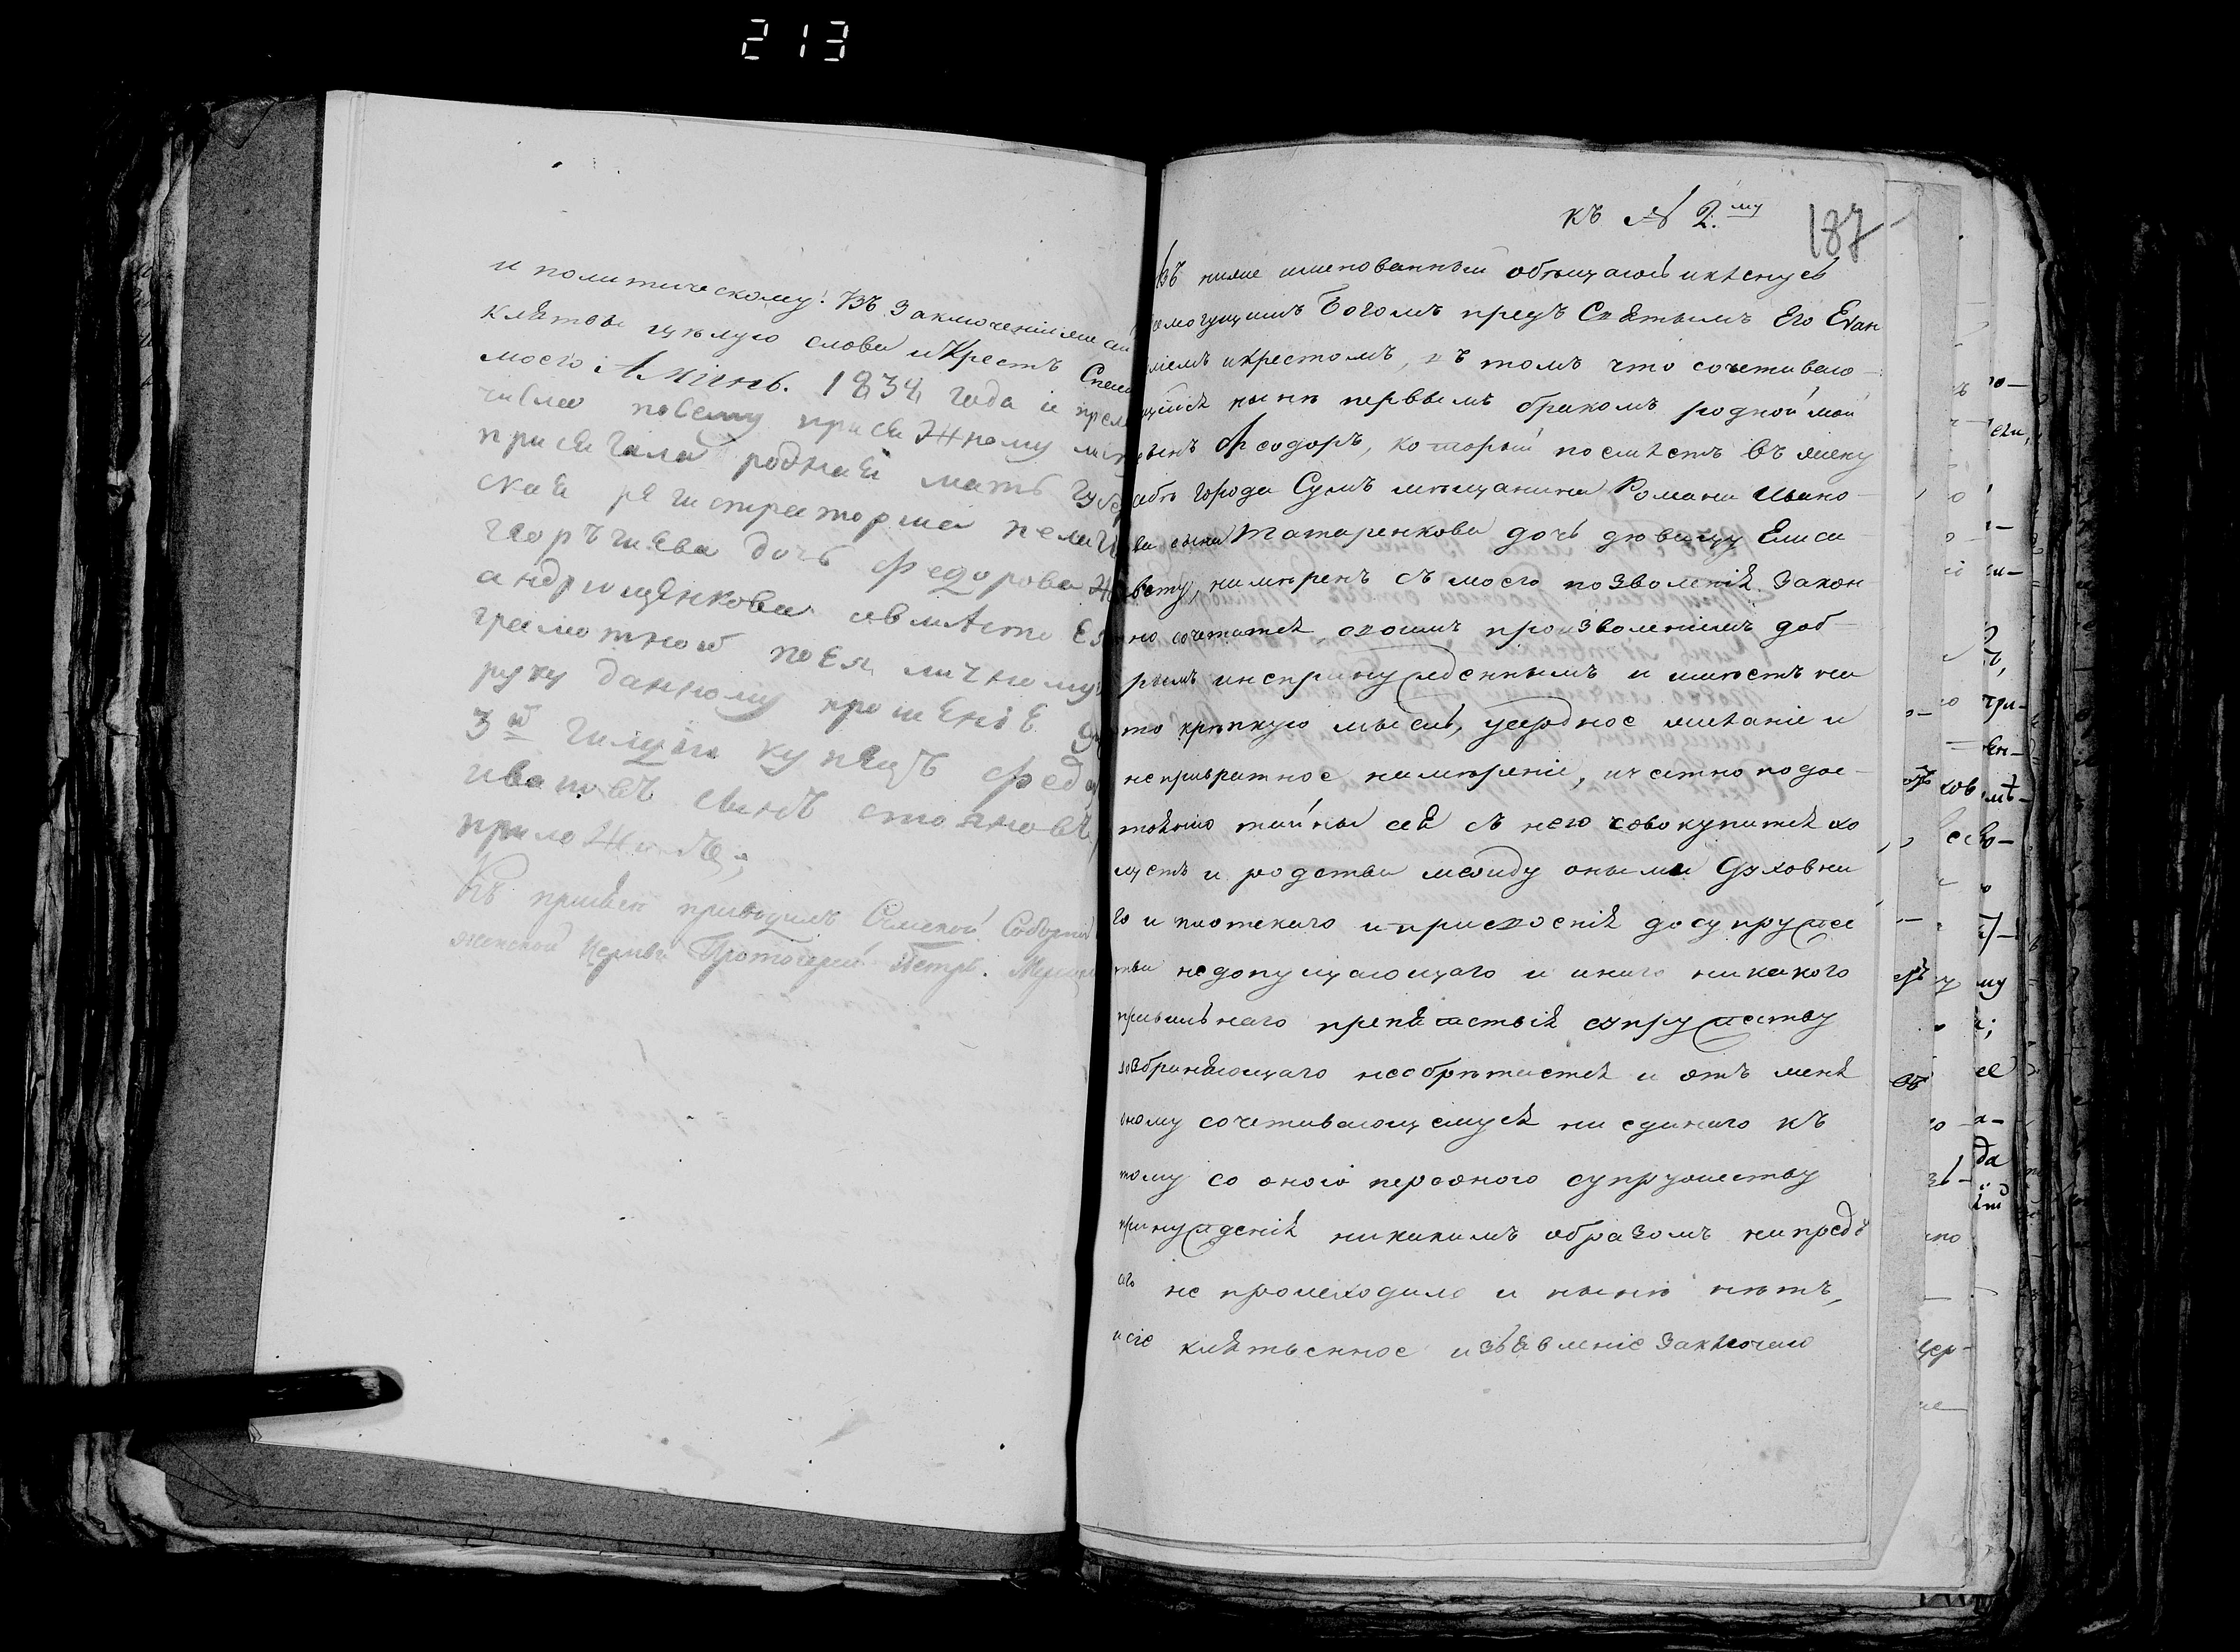 213
и политическому. Въ Заключеніи же
клятвы цѣлую слова и Крестъ Спаси
моего Аминь. 1834 года
числа по сему присяжному
присягала родная мать Губер
ская регистраторша пелаг
георъгиева дочь Федорова
андрющенкова авмѣсто ея
грамотной по ея личному
руку данному прошеніе
3й гилдіи купецъ федо
ивановъ сынъ стояновъ
приложилъ;
Къ присяге приводилъ Сумской Соборной
женской Церкви Протоіерей Петръ
къ № 2.му
187
ниже именованный обѣщаюсь и клянусь
семогущимъ Богомъ предъ Святымъ Его Еван
ліемъ и крестомъ, въ томъ что сочетаваю-
щійся нынѣ первымъ бракомъ родной мой
сынъ Феодоръ, который поемлетъ въ жену
себѣ города Сумъ мѣщанина Романа Ивано-
ва сына Татаренкова дочь дѣвицу Елиса
вету, намѣренъ съ моего позволенія закон
но сочетатся, своимъ произволеніемъ доб-
рымъ и непринужденнымъ и имѣетъ на
то крѣпкую мысль, усердное желаніе и
непривратное намѣреніе, и честно по дос-
тоянію тайны сея съ нею совокупится хо
щетъ и родства между оными Духовна
го и плотскаго и присвоенія до супруже
тва недопущающаго и инаго никакого
правильнаго препятствія супружеству
возбраняющаго необрѣтается и отъ меня
оному сочетавающемуся ни единаго къ
тому со оною персоною супружеству
принужденія никакимъ образомъ ни предъ
сего не происходило и нынѣ нѣтъ,
и сіе клятвенное изъявленіе Заключаю